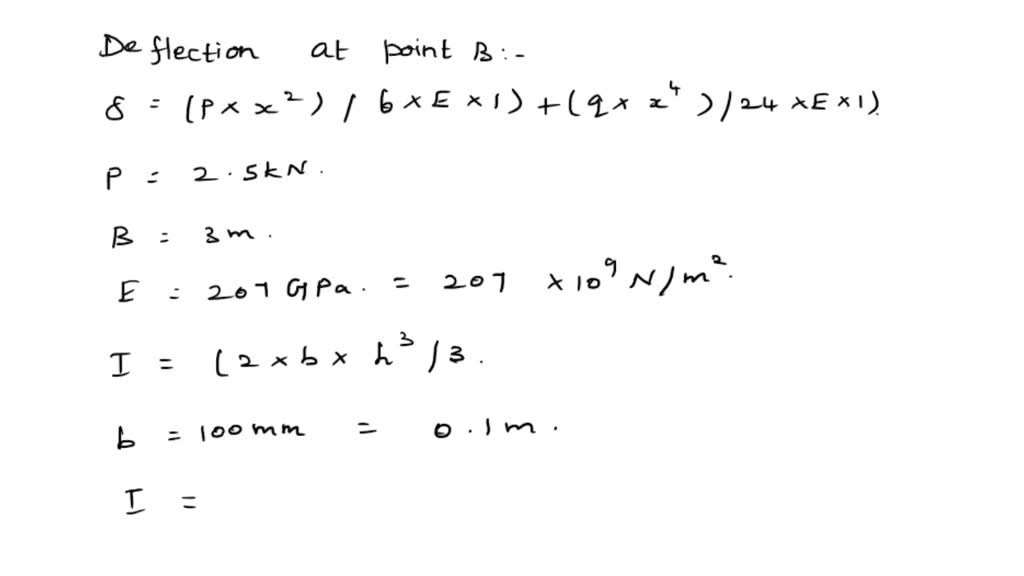 Deflection at point B:-
δ = (P × x²) / 6 × E × 1) + (q × x⁴) / 24 × E × 1)
P = 2.5kN.
B = 3m.
E = 207 GPa. = 207 × 10⁹ N/m².
I = (2 × b × h³/3.
b = 100mm = 0.1m.
I =